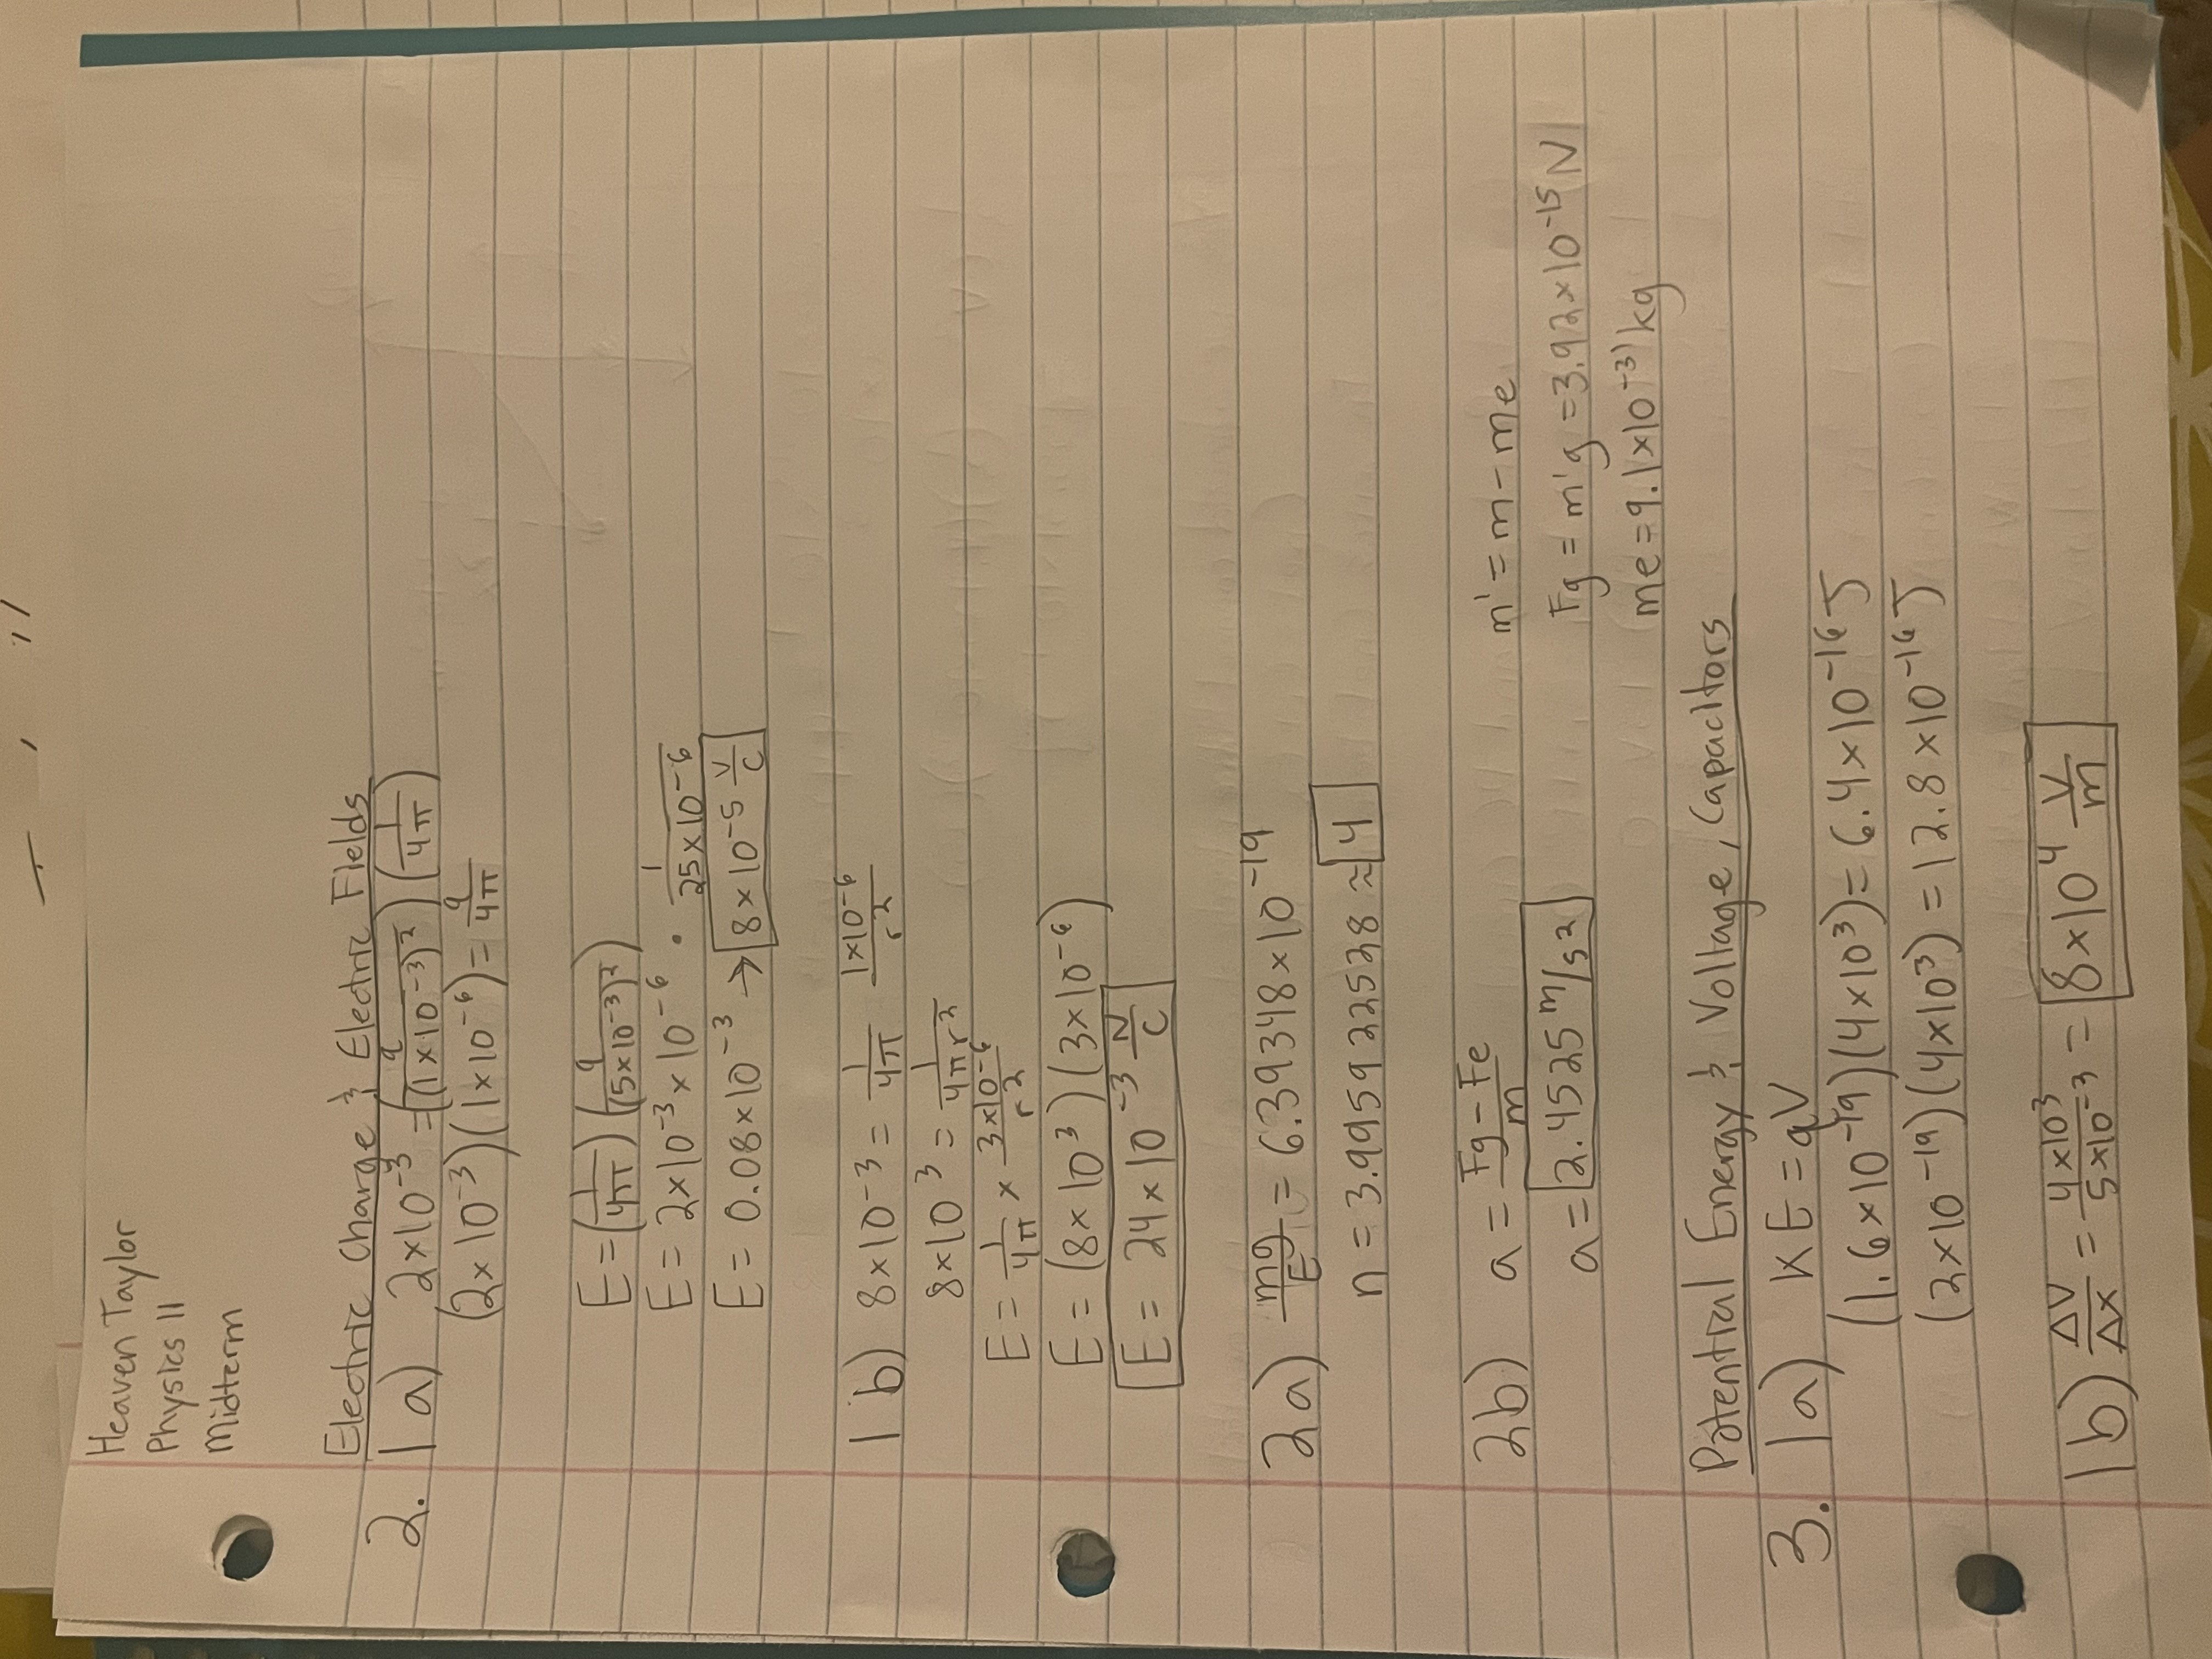 Heaven Taylor
Physics II
Midterm
Electric Charge & Electric Fields
2. 1a) 2×10⁻³ = (q/(1×10⁻³)²)(1/4π)
(2×10⁻³)(1×10⁻⁶) = q/4π
E = (1/4π)(q/(5×10⁻³)²)
E = 2×10⁻³×10⁻⁶ · 1/25×10⁻⁶
E = 0.08×10⁻³ → 8×10⁻⁵ V/C
1b) 8×10⁻³ = 1/4π 1×10⁻⁶/r²
8×10³ = 1/4πr²
E = 1/4π × 3×10⁻⁶/r²
E = (8×10³)(3×10⁻⁶)
E = 24×10⁻³ N/C
2a) mg/E = 6.39348×10⁻¹⁹
n = 3.995922528 ≈ 4
2b) a = Fg-Fe/m m' = m-me
a = 2.4525 m/s² Fg = m'g = 3.92×10⁻¹⁵ N
me = 9.1×10⁻³¹ kg
Potential Energy & Voltage, Capacitors
3. 1a) KE = qV
(1.6×10⁻¹⁹)(4×10³) = 6.4×10⁻¹⁶ J
(2×10⁻¹⁹)(4×10³) = 12.8×10⁻¹⁶ J
1b) ΔV/Δx = 4×10³/5×10⁻³ = 8×10⁴ V/m